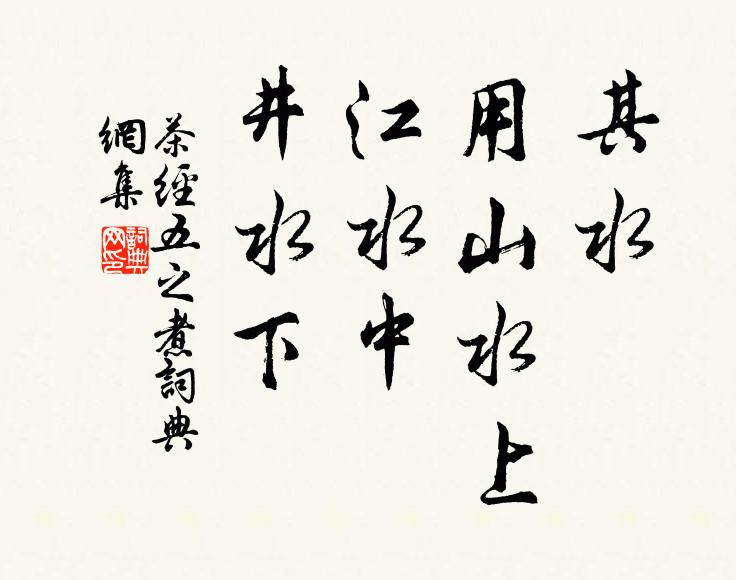 其水
用山水上
江水中
井水下
茶經五之煮詞典
網集
詞典
网印